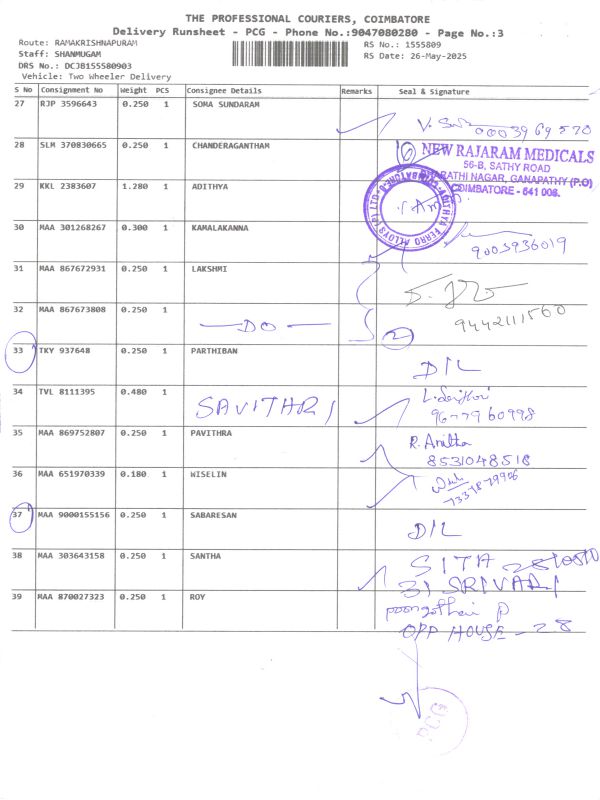 THE PROFESSIONAL COURIERS, COIMBATORE
Delivery Runsheet - PCG - Phone No.:9047080280 - Page No.:3
Route: RAMAKRISHNAPURAM
RS No.: 1555809
Staff: SHANMUGAM
RS Date: 26-May-2025
DRS No.: DCJB155580903
Vehicle: Two Wheeler Delivery
S No Consignment No Weight PCS Consignee Details Remarks Seal & Signature
27 RJP 3596643 0.250 1 SOMA SUNDARAM
0003969570
28 SLM 370830665 0.250 1 CHANDERAGANTHAM
NEW RAJARAM MEDICALS
56-B, SATHY ROAD
BHARATHI NAGAR, GANAPATHY (P.O)
COIMBATORE - 641 006.
29 KKL 2383607 1.280 1 ADITHYA
ADITHYA FERRO ALLOYS (P) LTD COIMBATORE-6
30 MAA 301268267 0.300 1 KAMALAKANNA
9003936019
31 MAA 867672931 0.250 1 LAKSHMI
32 MAA 867673808 0.250 1
DO
2
9442111560
33 TKY 937648 0.250 1 PARTHIBAN
D/L
34 TVL 8111395 0.480 1
SAVITHRI
9677960998
35 MAA 869752807 0.250 1 PAVITHRA
R. Anitha
8531048518
36 MAA 651970339 0.180 1 WISELIN
7337879906
37 MAA 9000155156 0.250 1 SABARESAN
D/L
38 MAA 303643158 0.250 1 SANTHA
SITA
31 SRIVARI
39 MAA 870027323 0.250 1 ROY
poongothai P
OPP HOUSE - 28
PCG